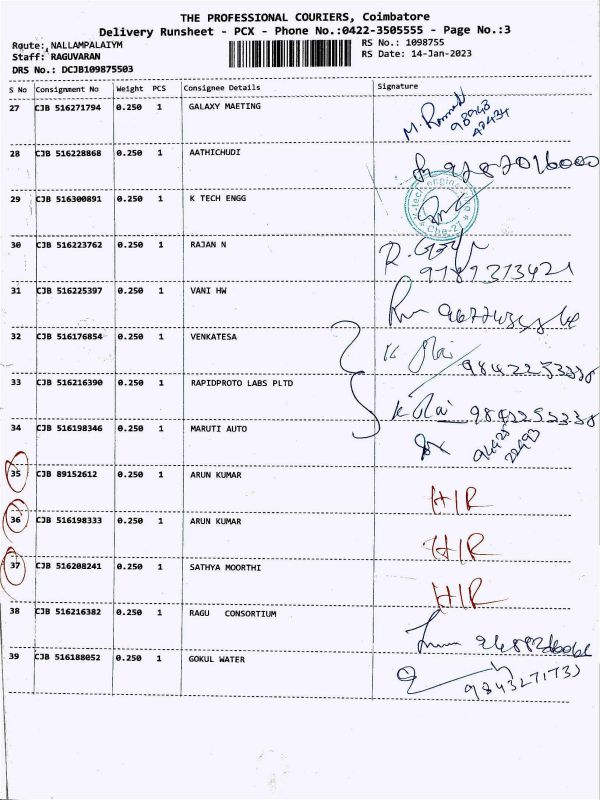 THE PROFESSIONAL COURIERS, Coimbatore
Delivery Runsheet - PCX - Phone No.:0422-3505555 - Page No.:3
Route: NALLAMPALAIYM
RS No.: 1098755
Staff: RAGUVARAN
RS Date: 14-Jan-2023
DRS No.: DCJB109875503
S No Consignment No Weight PCS Consignee Details Signature
27 CJB 516271794 0.250 1 GALAXY MAETING
28 CJB 516228868 0.250 1 AATHICHUDI
29 CJB 516300891 0.250 1 K TECH ENGG
Cbe-27
30 CJB 516223762 0.250 1 RAJAN N
9787373421
31 CJB 516225397 0.250 1 VANI HW
32 CJB 516176854 0.250 1 VENKATESA
9842253338
33 CJB 516216390 0.250 1 RAPIDPROTO LABS PLTD
9842253338
34 CJB 516198346 0.250 1 MARUTI AUTO
94425
22493
35 CJB 89152612 0.250 1 ARUN KUMAR H/R
36 CJB 516198333 0.250 1 ARUN KUMAR H/R
37 CJB 516208241 0.250 1 SATHYA MOORTHI H/R
38 CJB 516216382 0.250 1 RAGU CONSORTIUM
39 CJB 516188052 0.250 1 GOKUL WATER